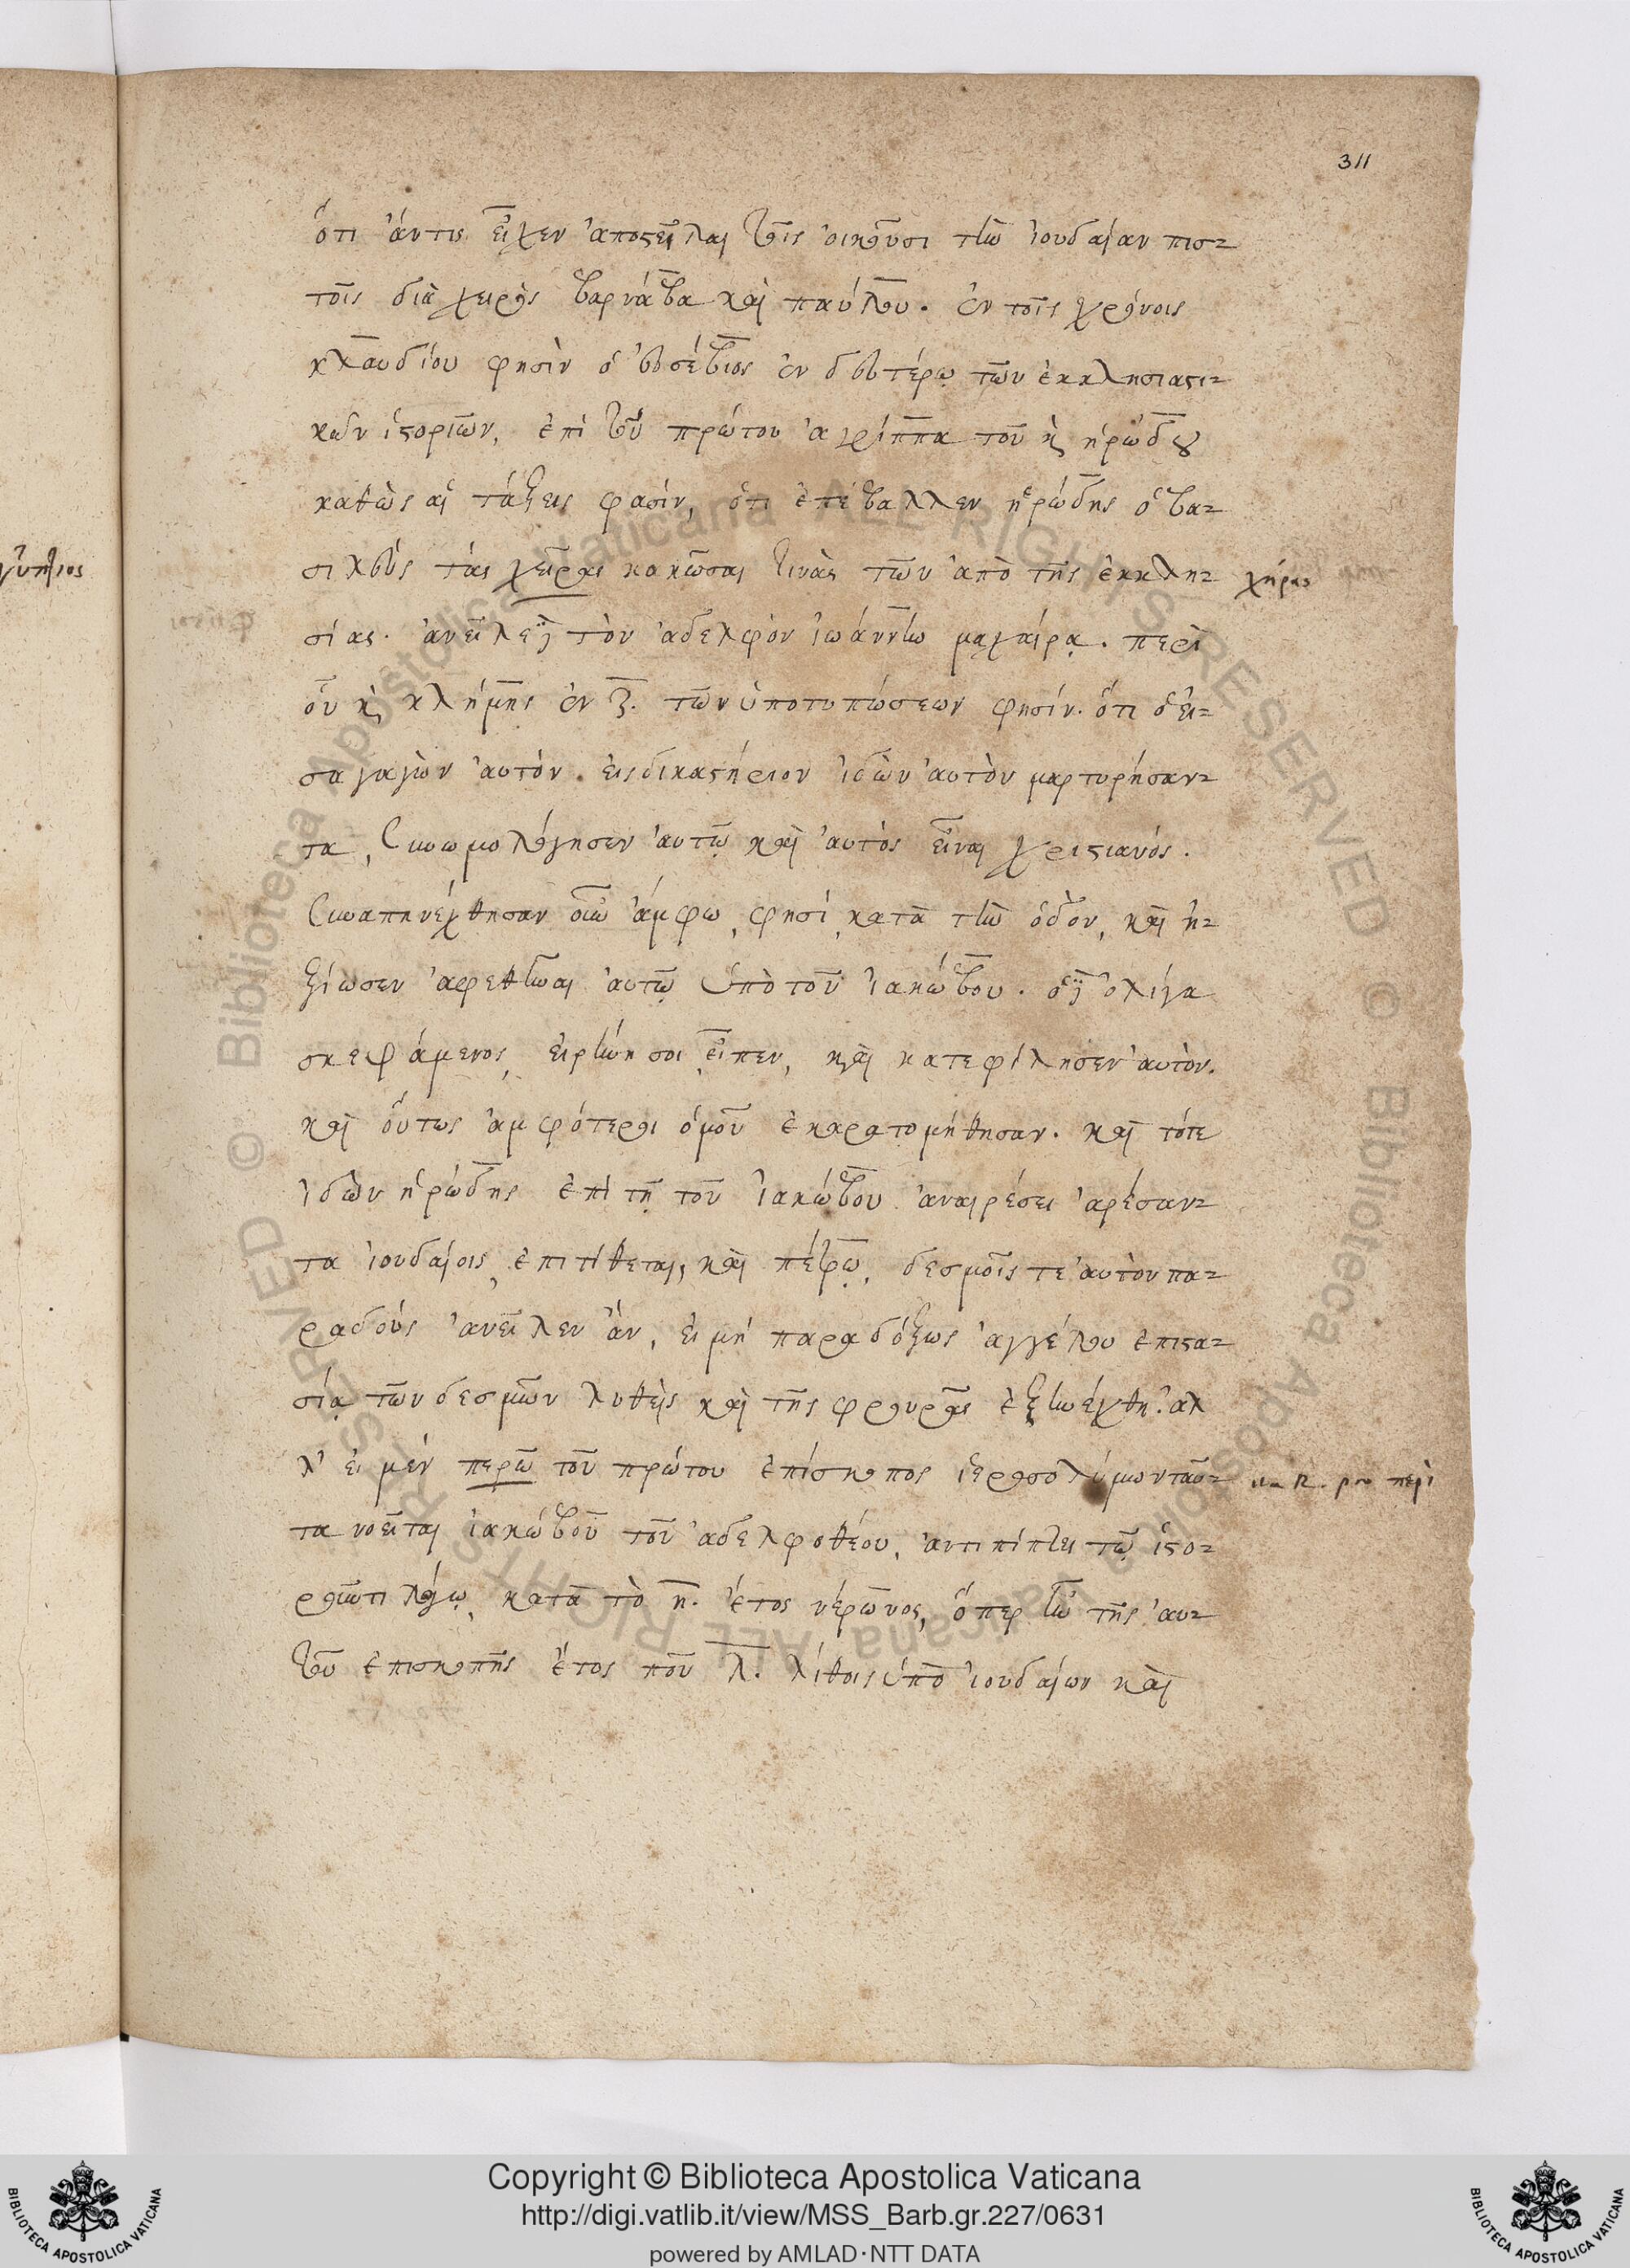 311
ὅτι ἄντις εἶχεν ἀποστεῖλαι τοῖς οἰκοῦσι τὴν ἰουδαίαν πισ-
τοῖς διὰ χειρὸς βαρνάβα καὶ παύλου. ἐν τοῖς χρόνοις
κλαυδίου φησὶν ὁ εὐσέβιος ἐν δευτέρῳ τῶν ἐκκλησιαστι-
κῶν ἱστοριῶν, ἐπὶ τοῦ πρώτου ἀγρίππα τοῦ κ ἡρώδου
καθὼς αἱ τάξεις φασίν, ὅτι ἐπέβαλλεν ἡρώδης ὁ βα-
σιλεύς τάς χεῖρας κακῶσαι τινὰς τῶν ἀπὸ τῆς ἐκκλη-
χήρας
σίας. ἀνεῖλε δὲ τὸν ἀδελφὸν ἰωάννην μαχαίρᾳ. περὶ
οὗ κ κλήμης ἐν ζ. τῶν ὑποτυπώσεων φησίν. ὅτι ὁ εἰ-
σαγαγὼν αὐτὸν. εἰς δικαστήριον ἰδὼν αὐτὸν μαρτυρήσαν-
τα, συνωμολόγησεν αὐτῷ καὶ αὐτὸς εἶναι χριστιανός.
συναπηνέχθησαν οὖν ἄμφω, φησί, κατὰ τὴν ὁδὸν, καὶ ἠ-
ξίωσεν ἀφεθῆναι αὐτῷ ὑπὸ τοῦ ἰακώβου. ὁ δὲ ὀλίγα
σκεψάμενος, εἰρήνη σοι εἶπεν, καὶ κατεφίλησεν αὐτὸν.
καὶ οὕτως ἀμφότεροι ὁμοῦ ἐκαρατομήθησαν. καὶ τότε
ἰδὼν ἡρώδης ἐπὶ τῇ τοῦ ἰακώβου ἀναιρέσει ἀρέσαν-
τα ἰουδαίοις, ἐπιτίθεται, καὶ πέτρῳ, δεσμοῖς τε αὐτὸν πα-
ραδούς ἀνεῖλεν ἂν, εἰ μή παραδόξως ἀγγέλου ἐπιστα-
σίᾳ τῶν δεσμῶν λυθεὶς καὶ τῆς φρουρᾶς ἐξηνέχθη. ἀλ
λ' εἰ μέν περῶ τοῦ πρώτου ἐπίσκοπος ἱεροσολύμων ταῦ-
R. pro περὶ
τα νοεῖται ἰακώβου τοῦ ἀδελφοθέου, ἀντιπίπτει τῷ ἱστο-
ροῦντι λόγῳ, κατὰ τὸ η. ἔτος νέρωνος, ὅπερ ἦν τῆς αυ-
τοῦ ἐπισκοπῆς ἔτος που λ. λίθοις ὑπὸ ἰουδαίων καὶ
Copyright © Biblioteca Apostolica Vaticana
http://digi.vatlib.it/view/MSS_Barb.gr.227/0631
powered by AMLAD·NTT DATA